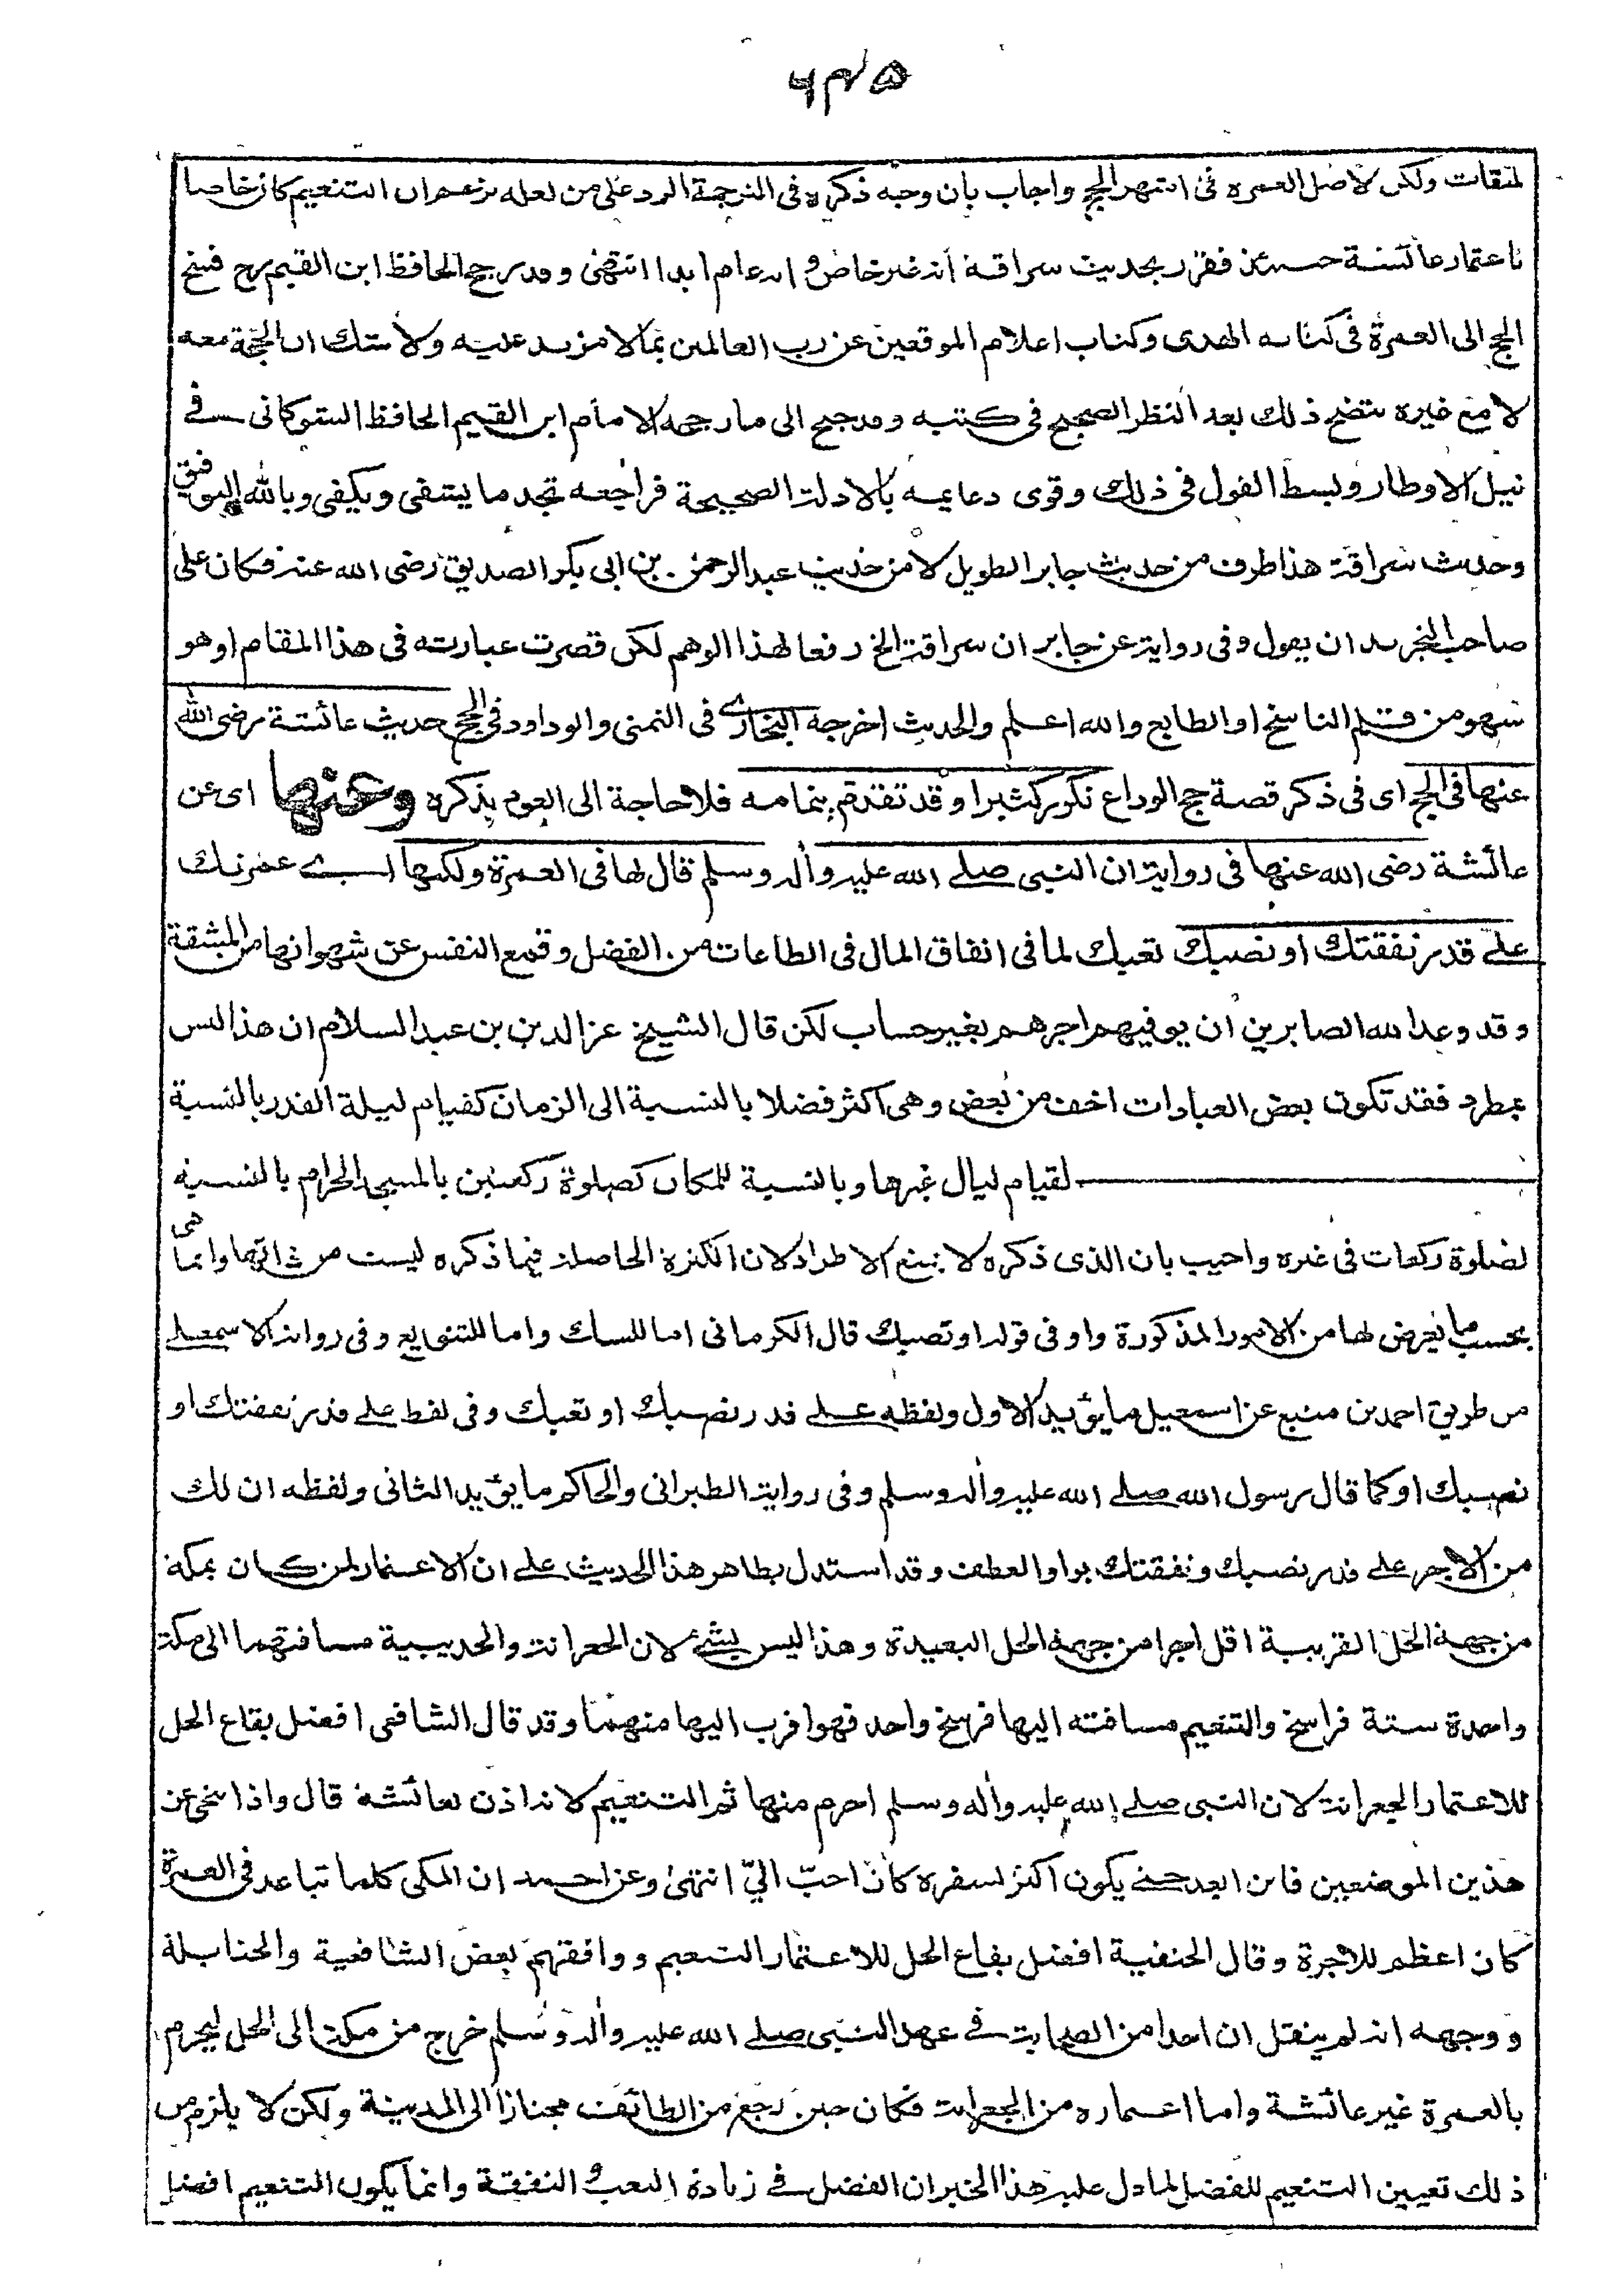 ٦٤٥
لميقات ولكن لاصل العمرة فى اشهر الحج واجاب بان وجه ذكره فى الترجمة الرد على من لعله يزعم ان التنعيم كان خاصا
باعتمار عائشة حينئذ فقرر بحديث سراقة انه غير خاص وانه عام ابدا انتهى وقد رجح الحافظ ابن القيم رح فسخ
الحج الى العمرة فى كتابه الهدى وكتاب اعلام الموقعين عن رب العالمين بما لا مزيد عليه ولا شك ان الحجة معه
لا مع غيره يتضح ذلك بعد النظر الصحيح فى كتبه وقد جنح الى ما رجحه الامام ابن القيم الحافظ الشوكانى فى
نيل الاوطار وبسط القول فى ذلك وقوى دعايمه بالادلة الصحيحة فراجعه تجد ما يشفى ويكفى وبالله التوفيق
وحديث سراقة هذا طرف من حديث جابر الطويل لا من حديث عبد الرحمن بن ابى بكر الصديق رضى الله عنه فكان على
صاحب التجريد ان يقول وفى رواية عن جابر ان سراقة الخ رفعا لهذا الوهم لكن قصرت عبارته فى هذا المقام او هو
سهو من قلم الناسخ او الطابع والله اعلم والحديث اخرجه البخارى فى التمنى وابو داود فى الحج حديث عائشة رضى الله
عنها فى الحج اى فى ذكر قصة حج الوداع تكرر كثيرا وقد تقدم بتمامه فلا حاجة الى بذكره وعنها اى عن
عائشة رضى الله عنها فى رواية ان النبى صلى الله عليه واله وسلم قال لها فى العمرة ولكنها اى عمرتك
على قدر نفقتك او نصبك تعبك لما فى انفاق المال فى الطاعات من الفضل وقمع النفس عن شهواتها من المشقة
وقد وعد الله الصابرين ان يوفيهم اجرهم بغير حساب لكن قال الشيخ عز الدين بن عبد السلام ان هذا ليس
بمطرد فقد تكون بعض العبادات اخف من بعض وهى اكثر فضلا بالنسبة الى الزمان كقيام ليلة القدر بالنسبة
لقيام ليال غيرها وبالنسبة للمكان كصلوة ركعتين بالمسجد الحرام بالنسبة
لصلوة ركعات فى غيره واجيب بان الذى ذكره لا يمنع الاطراد لان الكثرة الحاصلة فيما ذكره ليست من ذاتها وانما هى
بحسب ما يعرض لها من الامور المذكورة واو فى قوله او نصبك قال الكرمانى اما للشك واما للتنويع وفى رواية الاسمعيلى
من طريق احمد بن منيع عن اسمعيل ما يؤيد الاول ولفظه على قدر نصبك او تعبك وفى لفظ على قدر نفقتك او
نصبك او كما قال رسول الله صلى الله عليه واله وسلم وفى رواية الطبرانى والحاكم ما يؤيد الثانى ولفظه ان لك
من الاجر على قدر نصبك ونفقتك بواو العطف وقد استدل بظاهر هذا الحديث على ان الاعتمار لمن كان بمكة
من جهة الحل القريبة اقل اجرا من جهة الحل البعيدة وهذا ليس بشئ لان الجعرانة والحديبية مسافتهما الى مكة
واحدة ستة فراسخ والتنعيم مسافته اليها فرسخ واحد فهو اقرب اليها منهما وقد قال الشافعى افضل بقاع الحل
للاعتمار الجعرانة لان النبى صلى الله عليه واله وسلم احرم منها ثم التنعيم لانه اذن لعائشة قال واذا تنحى عن
هذين الموضعين فاين ابعد حتى يكون اكثر لسفره كان احب الىّ انتهى وعن احمد ان المكى كلما تباعد فى العمرة
كان اعظم للاجرة وقال الحنفية افضل بقاع الحل للاعتمار التنعيم ووافقهم بعض الشافعية والحنابلة
ووجهه انه لم ينقل ان احدا من الصحابة فى عهد النبى صلى الله عليه واله وسلم خرج من مكة الى الحل ليحرم
بالعمرة غير عائشة واما اعتماره من الجعرانة فكان حين رجع من الطائف مجتازا الى المدينة ولكن لا يلزم من
ذلك تعيين التنعيم للفضل لما دل عليه هذا الخبر ان الفضل فى زيادة التعب والنفقة وانما يكون التنعيم افضل